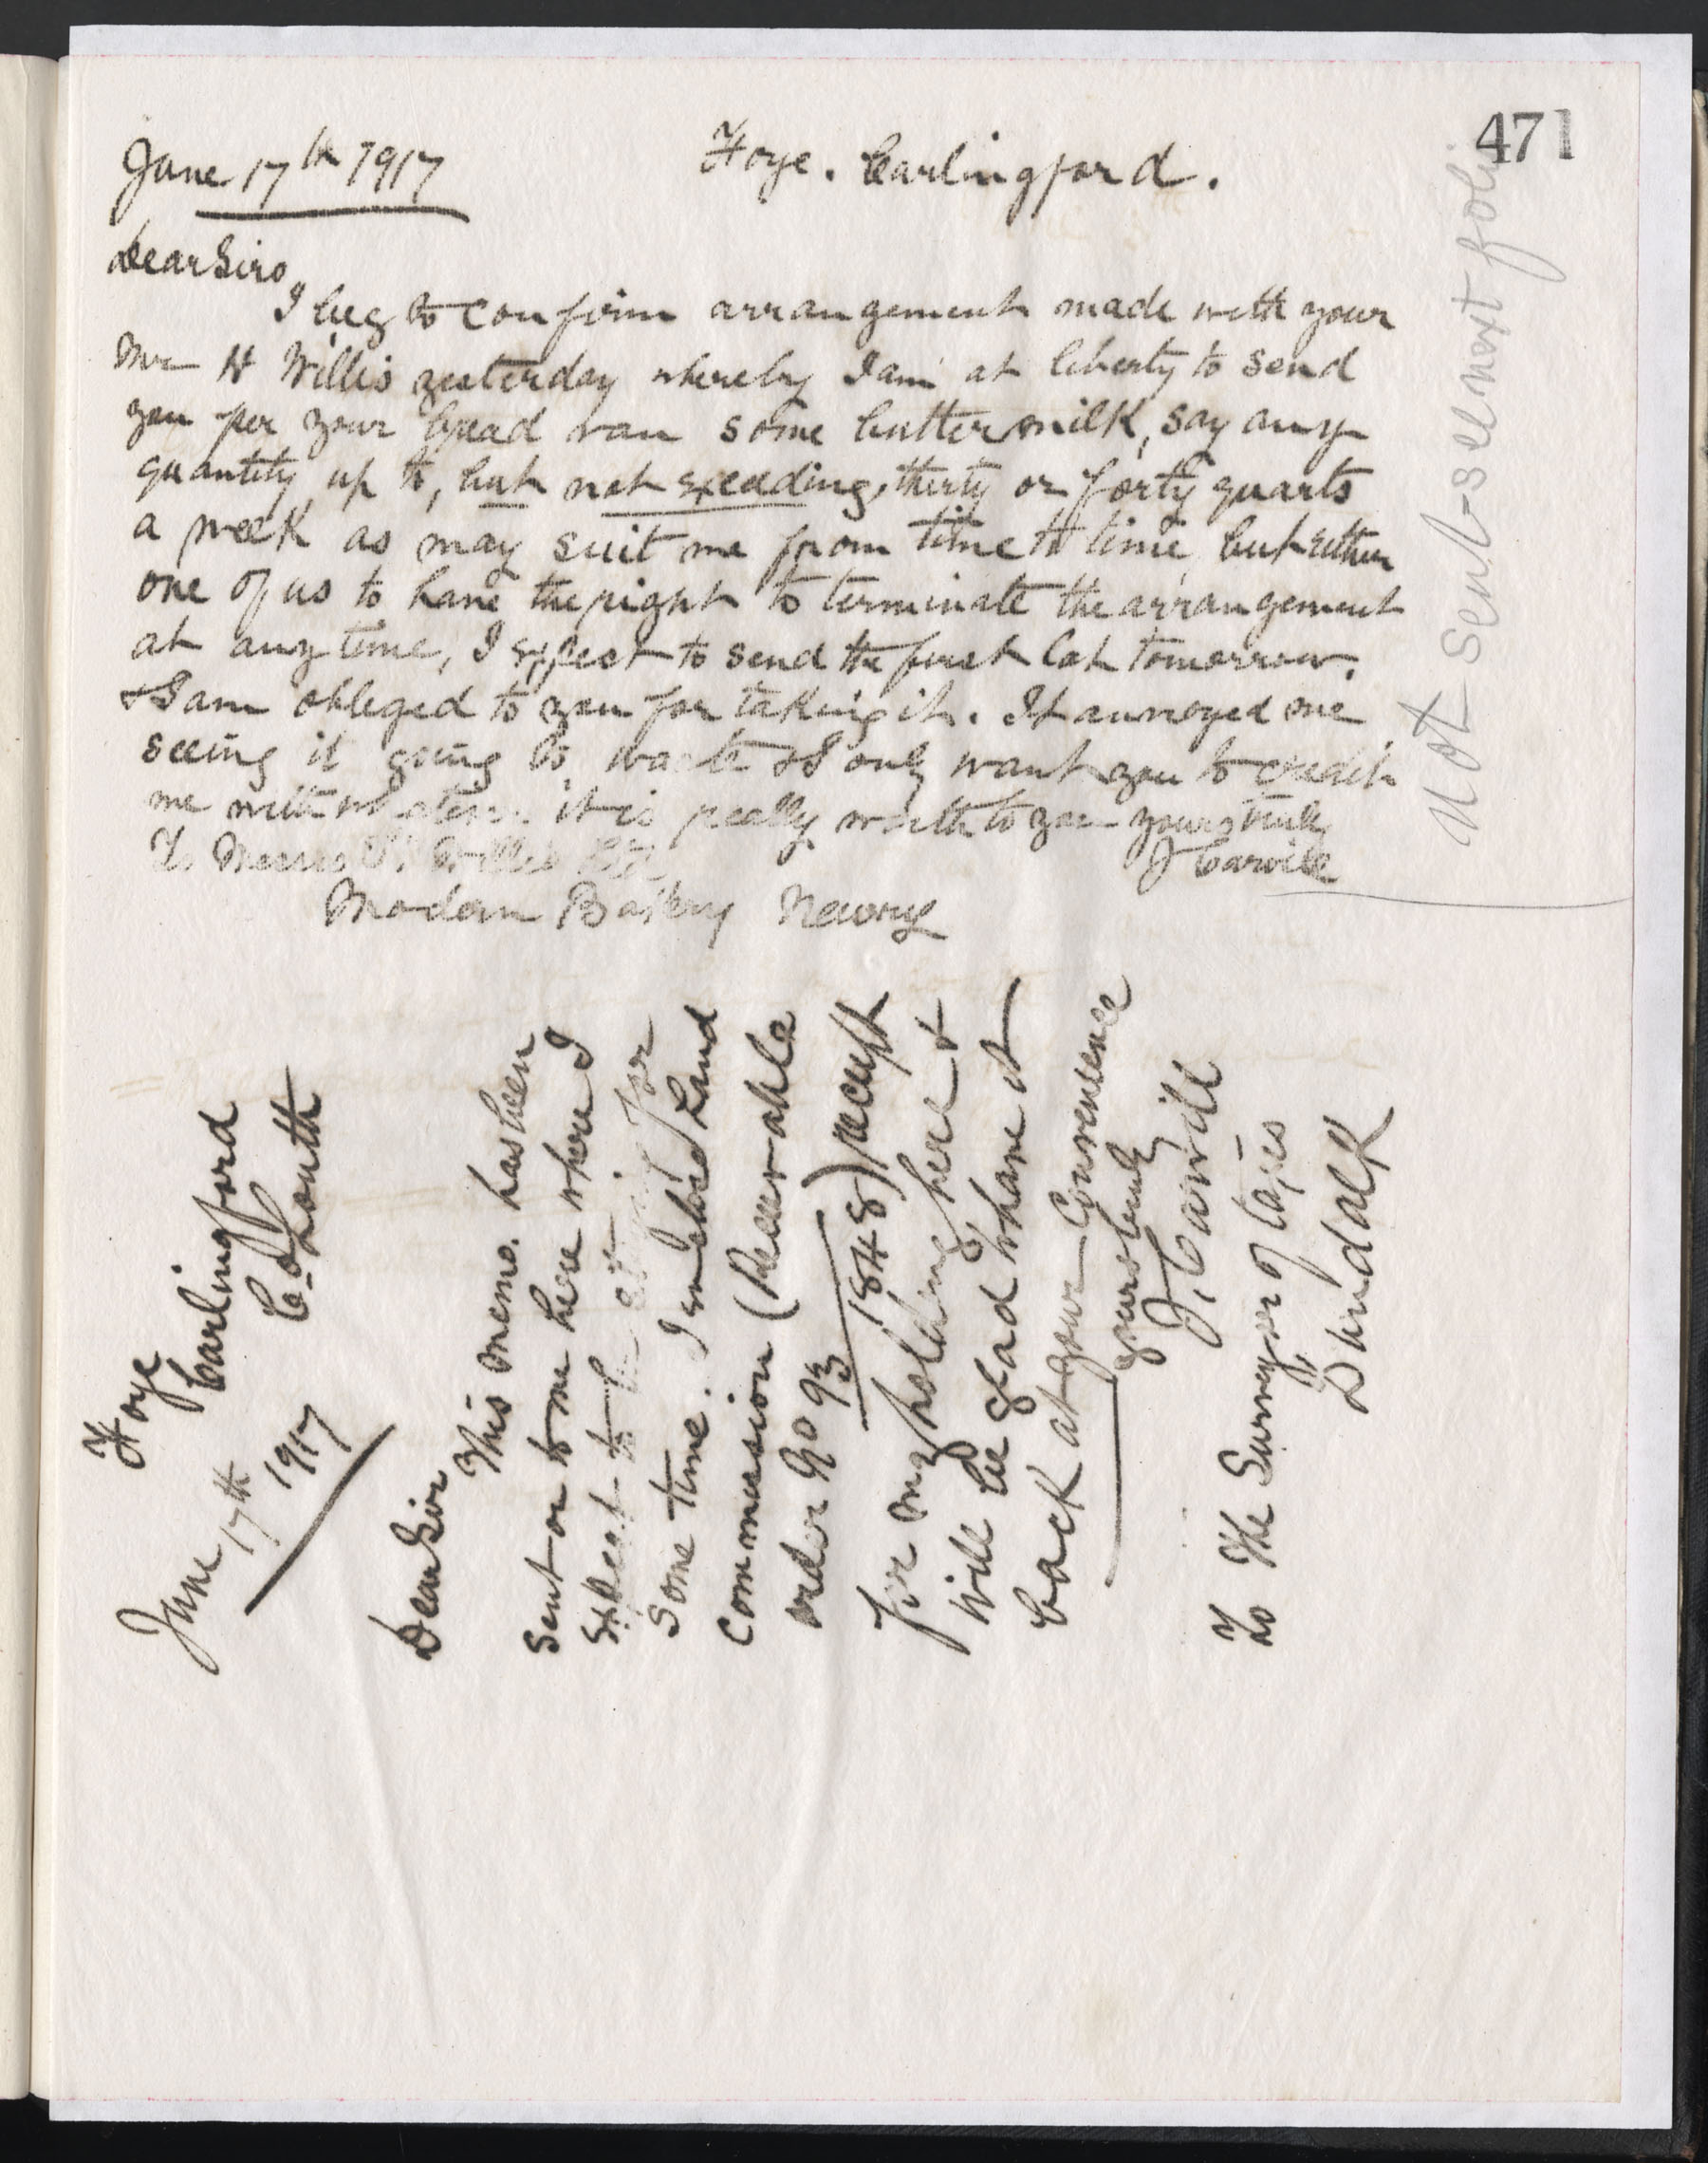 471
June 17th 1917
Foye. Carlingford.
Dear Sirs
I beg to confirm arrangement made with your
Mr H Willis yesterday whereby I am at liberty to send
you per your bread van some butter milk, say any
quantity up to, but not exceeding, thirty or forty quarts
a week as may suit me from time to time, but either
one of us to have the right to terminate the arrangement
at any time, I expect to send the first lot tomorrow.
& I am obliged to you for taking it. It annoyed me
seeing it going to waste & I only want you to credit
me with it is really worth to you yours truly
J Carvill
To Messrs Willis
Modern Bakery Newry
Not sent - see next folio
Foye
Carlingford
Co Louth
June 17th
1917
Dear Sir
This memo. has been
sent on to me here where I
expect to be for
some time. I enclose Land
Commission (Receivable
order No 93/1848) receipt
for my holding here &
will be glad to have it
back at your convenience
yours truly
J, Carvill
To The Surveyor of Taxes
Dundalk